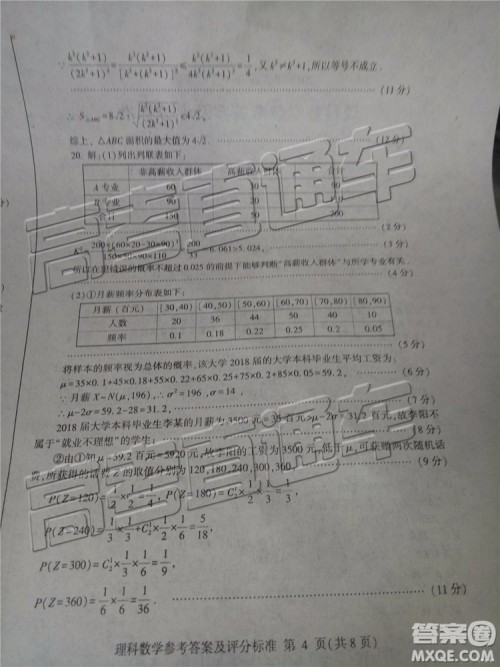 ∵ k²(k²+1)/(2k²+1)² = k²(k²+1)/[k²+(k²+1)]² ≤ k²(k²+1)/4k²(k²+1) = 1/4, 又 k²≠k²+1,所以等号不成立.
(11分)
∴ S△ABC = 8√2·√(k²(k²+1)/(2k²+1)²) < 4√2.
综上,△ABC 面积的最大值为 4√2. (12分)
20. 解:(1)列出列联表如下:
非高薪收入群体 高薪收入群体 合计
A专业 60
B专业 90
合计 150 200
(2分)
200×(60×20-30×90)²/150×50×90×110 = 200/33 6.061>5.024,
(3分)
所以在犯错误的概率不超过 0.025 的前提下能够判断“高薪收入群体”与所学专业有关.
(4分)
(2)①月薪频率分布表如下:
月薪(百元) [30,40) [40,50) [50,60) [60,70) [70,80) [80,90)
人数 20 36 44 50 40 10
频率 0.1 0.18 0.22 0.25 0.2 0.05
(5分)
将样本的频率视为总体的概率,该大学 2018 届的大学本科毕业生平均工资为:
μ=35×0.1+45×0.18+55×0.22+65×0.25+75×0.2+85×0.05
∵ 月薪 X~N(μ,196),∴ σ²=196 ,σ=14
∴ μ-2σ=59.2-28=31.2.
2018 届大学本科毕业生李某的月薪为 3500元=35 百元>μ-2σ=31.2百元,故李阳不
属于“就业不理想”的学生; (8分)
②由①知μ=59.2 百元=5920元,故李阳的工资为 3500元,低于μ,可获赠两次随机话
费,所获得的话费 Z 的取值分别为 120,180,240,300,360. (9分)
P(Z=120)=1/2×1/2=1/4, P(Z=180)=C₂¹×1/2×1/3
P(Z=240)=1/3×1/3+C₂¹×1/2×1/6=5/18,
P(Z=300)=C₂¹×1/3×1/6=1/9,
P(Z=360)=1/6×1/6=1/36. (11分)
理科数学参考答案及评分标准 第 4 页(共8页)
高考直通车
高考直通车
高考直通车
答案圈
MXQE.COM